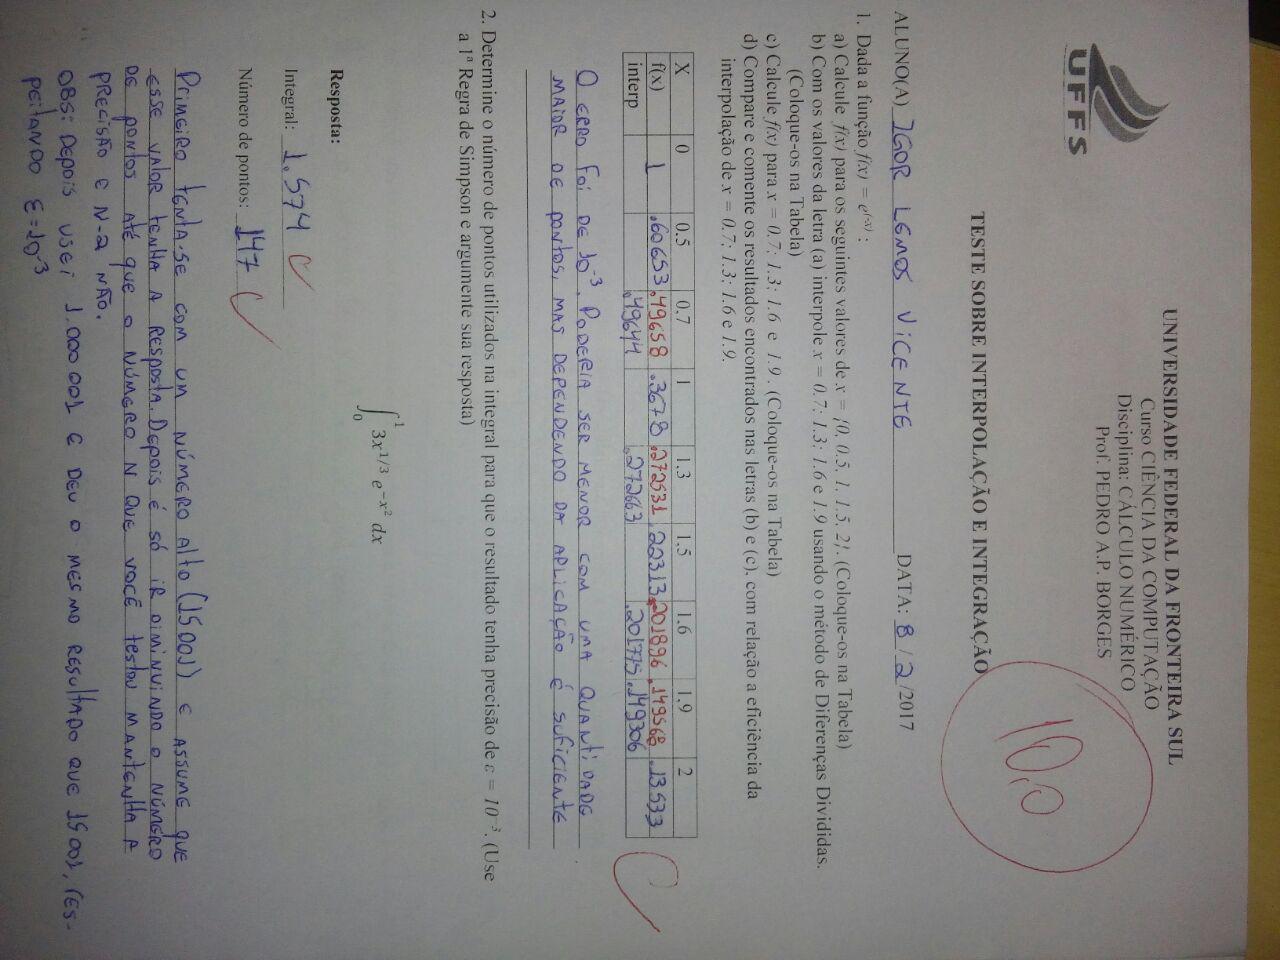 UNIVERSIDADE FEDERAL DA FRONTEIRA SUL
Curso CIÊNCIA DA COMPUTAÇÃO
Disciplina: CÁLCULO NUMÉRICO
Prof. PEDRO A.P. BORGES
UFFS
10,0
TESTE SOBRE INTERPOLAÇÃO E INTEGRAÇÃO
ALUNO(A) IGOR LEMOS VICENTE DATA: 8 / 2 /2017
1. Dada a função f(x) = e^(-x) :
a) Calcule f(x) para os seguintes valores de x = {0, 0.5, 1, 1.5, 2}. (Coloque-os na Tabela)
b) Com os valores da letra (a) interpole x = 0.7; 1.3; 1.6 e 1.9 usando o método de Diferenças Divididas.
(Coloque-os na Tabela)
c) Calcule f(x) para x = 0.7; 1.3; 1.6 e 1.9 . (Coloque-os na Tabela)
d) Compare e comente os resultados encontrados nas letras (b) e (c), com relação a eficiência da
interpolação de x = 0.7; 1.3; 1.6 e 1.9.
X 0 0.5 0.7 1 1.3 1.5 1.6 1.9 2
f(x) 1 .60653 .49658 .3678 .272531 .22313 .201896 .149568 .13533
interp .49644 .272663 .201775 .149306
O ERRO FOI DE 10^-3. PODERIA SER MENOR COM UMA QUANTIDADE
MAIOR DE PONTOS, MAS DEPENDENDO DA APLICAÇÃO É SUFICIENTE
2. Determine o número de pontos utilizados na integral para que o resultado tenha precisão de ε = 10^-3. (Use
a 1ª Regra de Simpson e argumente sua resposta)
∫_0^1 3x^1/3 e^-x^2 dx
Resposta:
Integral: 1.574
Número de pontos: 147
PRIMEIRO TENTA-SE COM UM NÚMERO ALTO (15001) E ASSUME QUE
ESSE VALOR TENHA A RESPOSTA. DEPOIS É SÓ IR DIMINUINDO O NÚMERO
DE PONTOS ATÉ QUE O NÚMERO N QUE VOCÊ TESTOU MANTENHA A
PRECISÃO E N-2 NÃO.
OBS: DEPOIS USEI 1.000001 E DEU O MESMO RESULTADO QUE 15001, RES-
PEITANDO ε=10^-3